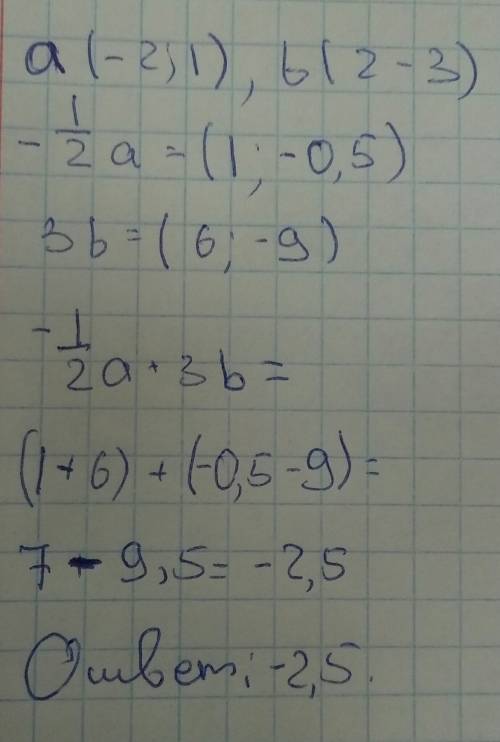 a(-2;1), b(2-3)
-1/2 a = (1; -0,5)
3b = (6; -9)
-1/2 a · 3b =
(1+6) + (-0,5-9) =
7 - 9,5 = -2,5
Ответ: -2,5.